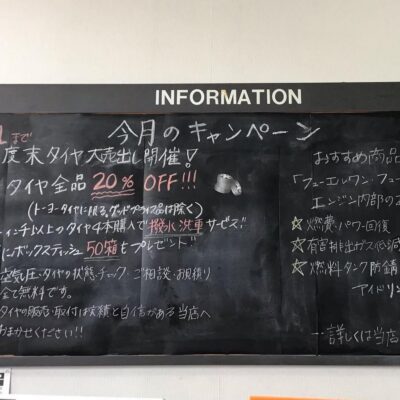 INFORMATION
まで
今月のキャンペーン
度末タイヤ大売出し開催!
タイヤ全品 20% OFF!!!
(トーヨータイヤに限る。グッドプライス品は除く)
インチ以上のタイヤ4本購入で撥水洗車サービス!!
にボックスティッシュ50箱をプレゼント!!
空気圧・タイヤの状態チェック・ご相談・お見積り
全て無料です。
タイヤの販売・取付は実績と自信がある当店へ
おまかせください!!
おすすめ商品
「フューエルワン・フュー
エンジン内部のお
☆ 燃費・パワー回復
☆ 有害排出ガス低減
☆ 燃料タンク防錆
アイドリン
詳しくは当店